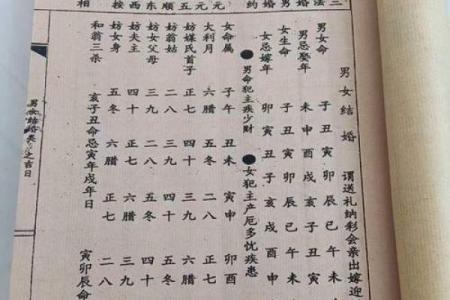 男女结婚 谓送礼纳彩会亲出嫁迎
男女命 子丑寅卯辰巳午未
男忌娶年 未申酉戌亥子丑寅
女生命 子丑寅卯辰巳午未
女忌嫁年 卯寅丑子亥戌酉申
●男命犯主疾少财 ●女犯主产厄多忧疾患
女命属 子午 丑未 寅申 卯酉
大利月 六腊 五冬 二八 正七
妨媒氏首子 正七 四十 三九 六腊
妨翁姑 二八 三九 四十 五冬
妨女父母 三九 二八 五冬 四十
妨夫主 四十 正七 六腊 三九
妨女身 五冬 六腊 正七 二八
和翁三杀 亥子丑命忌寅年戌年日 寅卯辰命
男女结婚之吉日